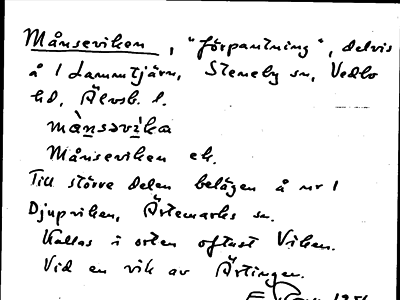 Månseviken, "förpantning", delvis
å 1 Lammtjärn, Steneby sn, Vedbo
hd, Älvsb. l.
mànsəvika
Månseviken ek.
Till större delen belägen å nr 1
Djupviken, Ärtemarks sn.
Kallas i orten oftast Viken.
Vid en vik av Ärtingen.